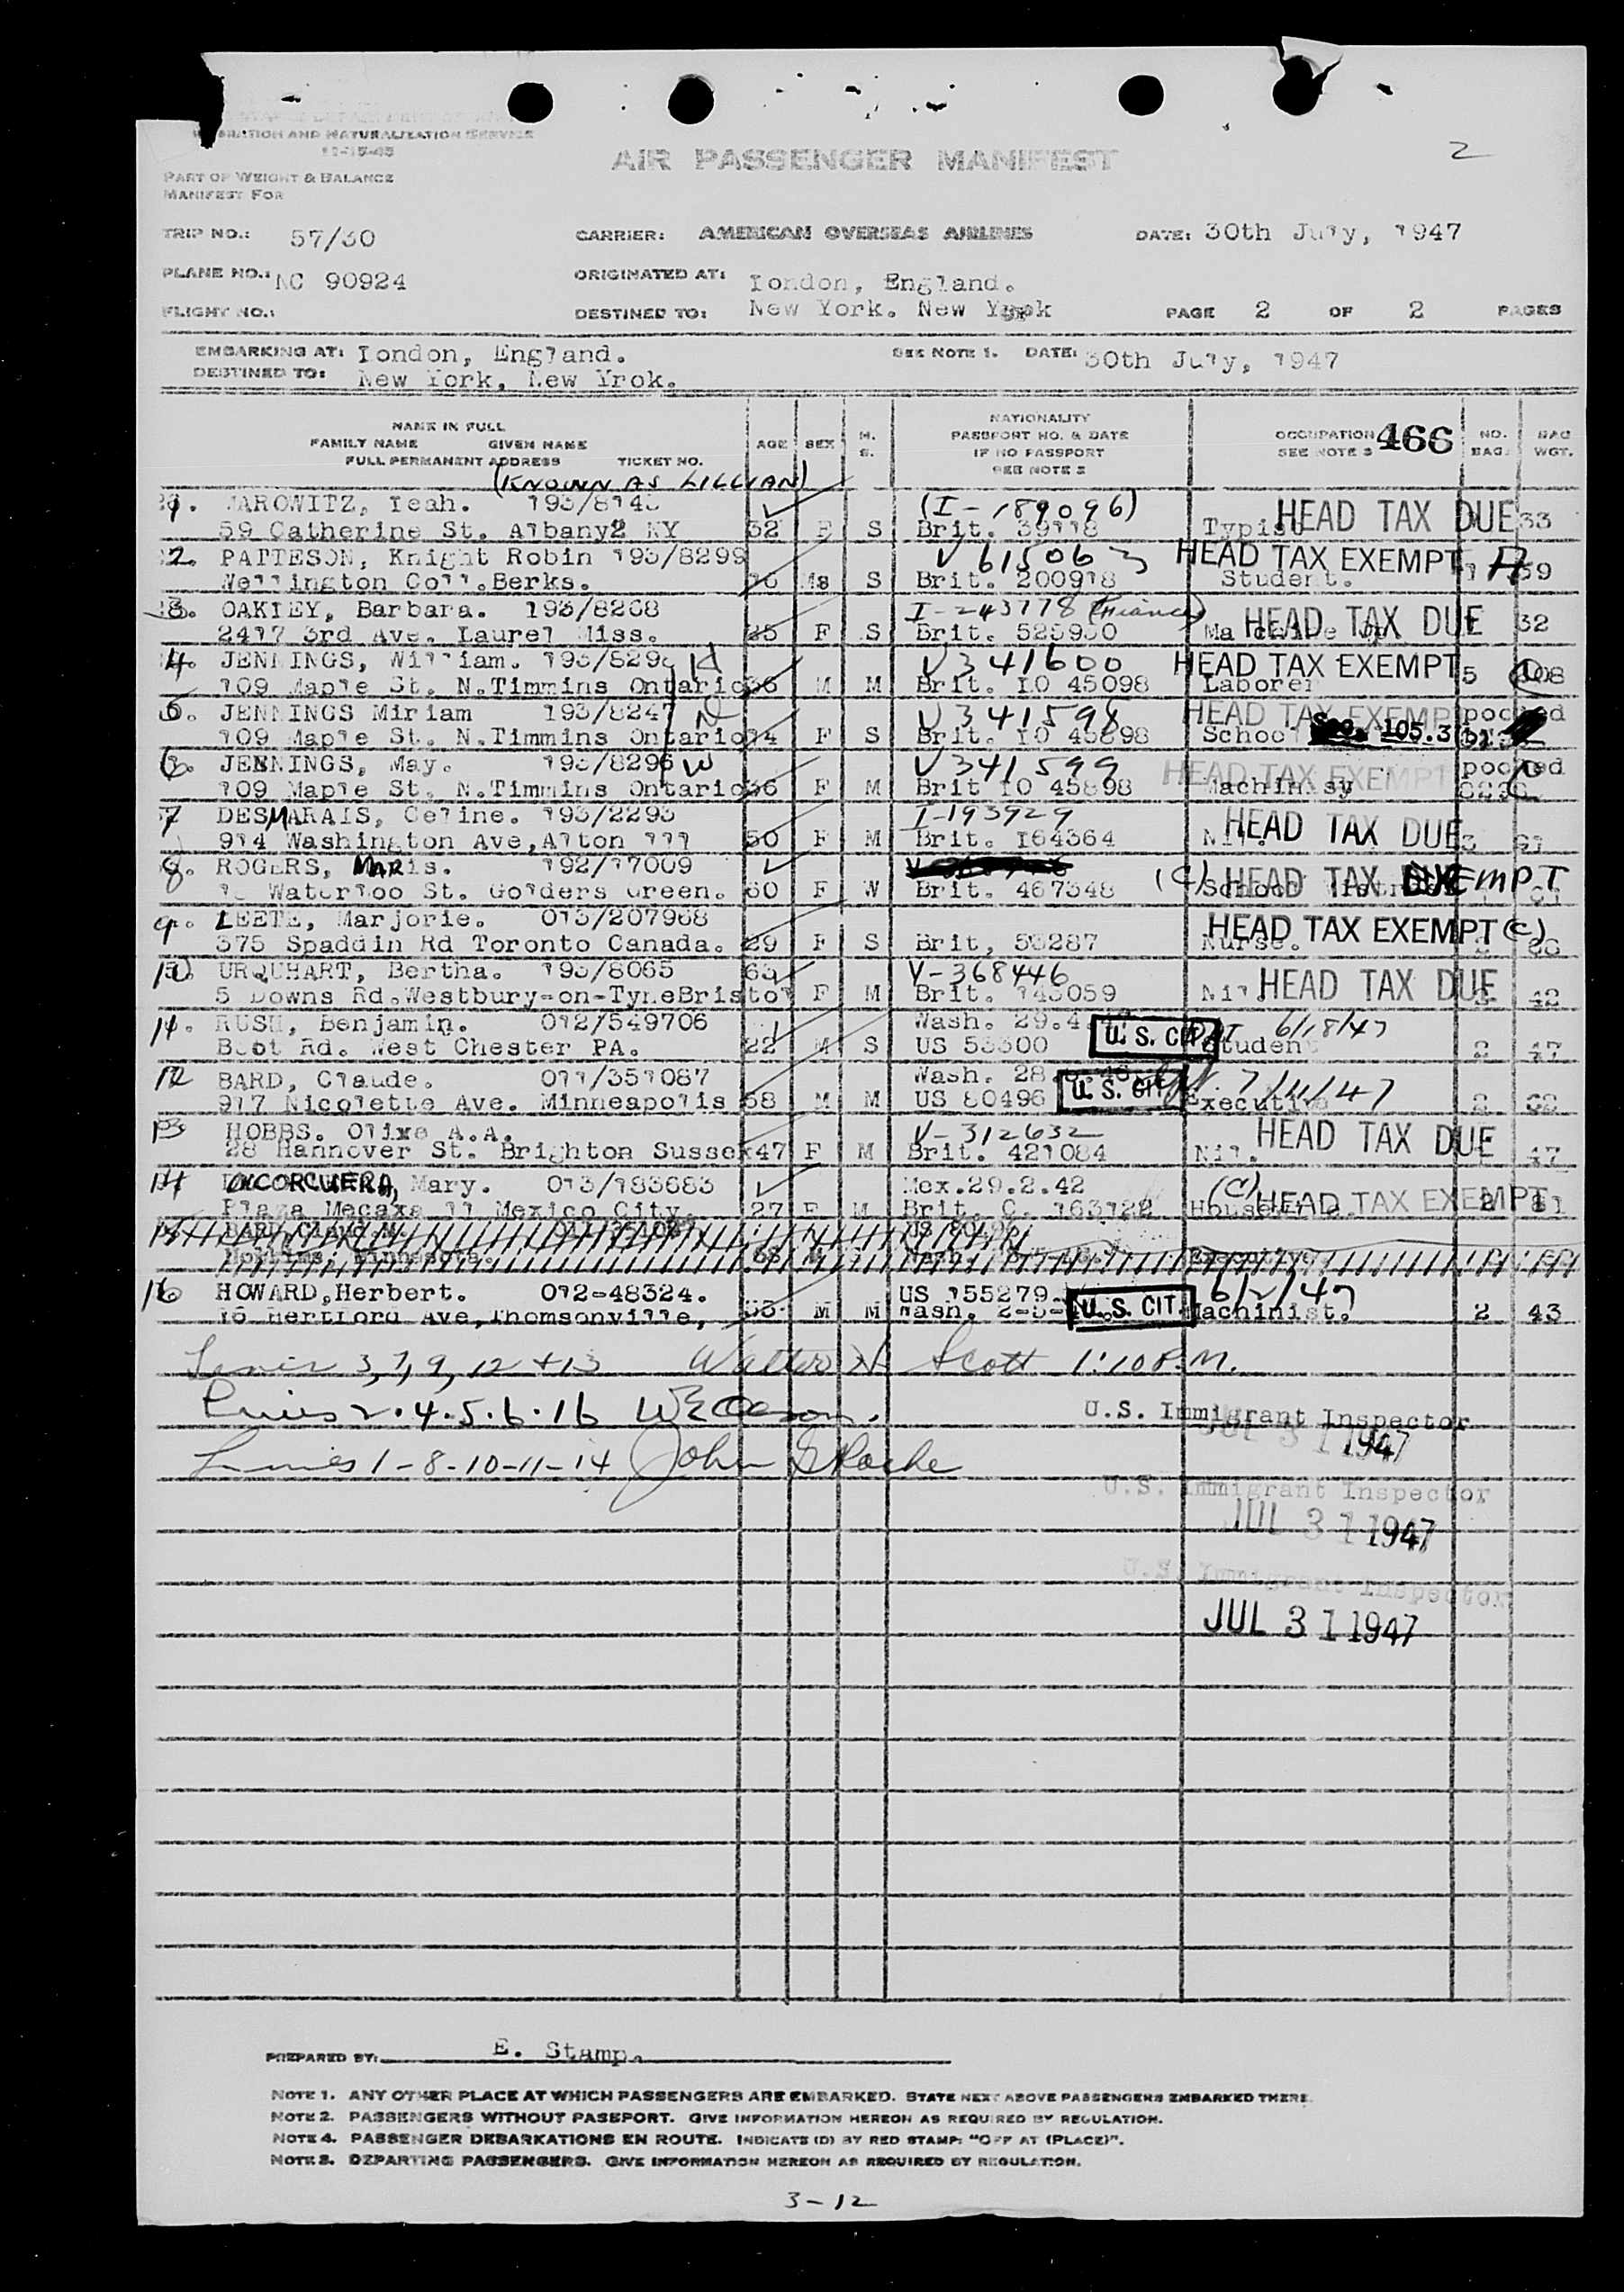 IMMIGRATION AND NATURALIZATION SERVICE
11-15-45
AIR PASSENGER MANIFEST
2
PART OF WEIGHT & BALANCE
MANIFEST FOR
TRIP NO.: 57/30 CARRIER: AMERICAN OVERSEAS AIRLINES DATE: 30th July, 1947
PLANE NO.: NC 90924 ORIGINATED AT: London, England.
FLIGHT NO.: DESTINED TO: New York. New York PAGE 2 OF 2 PAGES
EMBARKING AT: London, England. SEE NOTE 1. DATE: 30th July, 1947
DESTINED TO: New York, New Yrok.
NAME IN FULL
FAMILY NAME GIVEN NAME
FULL PERMANENT ADDRESS TICKET NO.
AGE SEX M. S.
NATIONALITY
PASSPORT NO. & DATE
IF NO PASSPORT
SEE NOTE 2
OCCUPATION
SEE NOTE 3 466
NO. BAG. BAG WGT.
(KNOWN AS LILLIAN)
1. JAROWITZ, Leah. (I-189096) HEAD TAX DUE 33
59 Catherine St. Albany2 NY 32 F S Brit. 39118 Typist
2. PATTESON, Knight Robin 193/8299 V 615063 HEAD TAX EXEMPT 59
Wellington Coll.Berks. 16 Ms S Brit. 200918 Student.
3. OAKLEY, Barbara. 193/8268 I-243778 (Fiance) HEAD TAX DUE 32
2417 3rd Ave. Laurel Miss. 25 F S Brit. 525930
4. JENNINGS, William. V341600 HEAD TAX EXEMPT 5
109 Maple St. N.Timmins Ontario 36 M M Brit. LO 45098 Laborer
5. JENNINGS Miriam 193/8247 V341598 HEAD TAX EXEMPT pooled
109 Maple St. N.Timmins Ontario 14 F S School Sec. 105.3
6. JENNINGS, May. 193/8296 W V341599 HEAD TAX EXEMPT pooled
109 Maple St. N.Timmins Ontario 36 F M Brit LO 45898
7 DESMARAIS, Celine. 193/2293 I-193929 HEAD TAX DUE
914 Washington Ave,Alton Ill 50 F M Brit. 164364 Nil.
8. ROGERS, MARis. 192/17009 (C) HEAD TAX EXEMPT
Waterloo St. Golders Green. 60 F W Brit. 467348 School
9. LEETE, Marjorie. 013/207968 HEAD TAX EXEMPT (C)
375 Spaddin Rd Toronto Canada. 29 F S Brit, 53287 Nurse.
10 URQUHART, Bertha. 193/8065 63 V-368446 HEAD TAX DUE
5 Downs Rd.Westbury-on-TyneBristol F M Brit. 143059 Nil. 42
11. RUSH, Benjamin. 012/549706 Wash. 29.4. U. S. CIT 6/18/47
Boot Rd. West Chester PA. 22 M S US 53300 Student 2 47
12 BARD, Claude. 011/351087 Wash. 28. U. S. CIT 7/11/47
917 Nicolette Ave. Minneapolis 68 M M US 80496 Executive 2 62
13 HOBBS. Olive A.A. V-312632 HEAD TAX DUE
28 Hannover St. Brighton Sussex 47 F M Brit. 421084 Nil. 47
14 Mary. 013/183683 Mex.29.2.42 (C) HEAD TAX EXEMPT
Plaza Mecaxa 11 Mexico City. 27 F M Brit. C. 163122 Housewife 2
Hopkins, Minnesota. 68 M Wash. Executive
16 HOWARD,Herbert. 012-48324. US 155279 6/2/47
16 Hertford Ave,Thomsonville, M M Wash. 2-5- U.S. CIT. Machinist. 2 43
Lines 3, 7, 9, 12 + 13 Walter N. Scott 1:10 P.M.
Lines 2.4.5.6.16
U.S. Immigrant Inspector
JUL 31 1947
Lines 1-8-10-11-14 John Roche
U.S. Immigrant Inspector
JUL 31 1947
U.S. Immigrant Inspector
JUL 31 1947
PREPARED BY: E. Stamp.
NOTE 1. ANY OTHER PLACE AT WHICH PASSENGERS ARE EMBARKED. STATE NEXT ABOVE PASSENGERS EMBARKED THERE.
NOTE 2. PASSENGERS WITHOUT PASSPORT. GIVE INFORMATION HEREON AS REQUIRED BY REGULATION.
NOTE 4. PASSENGER DEBARKATIONS EN ROUTE. INDICATE (D) BY RED STAMP: "OFF AT (PLACE)".
NOTE 3. DEPARTING PASSENGERS. GIVE INFORMATION HEREON AS REQUIRED BY REGULATION.
3-12